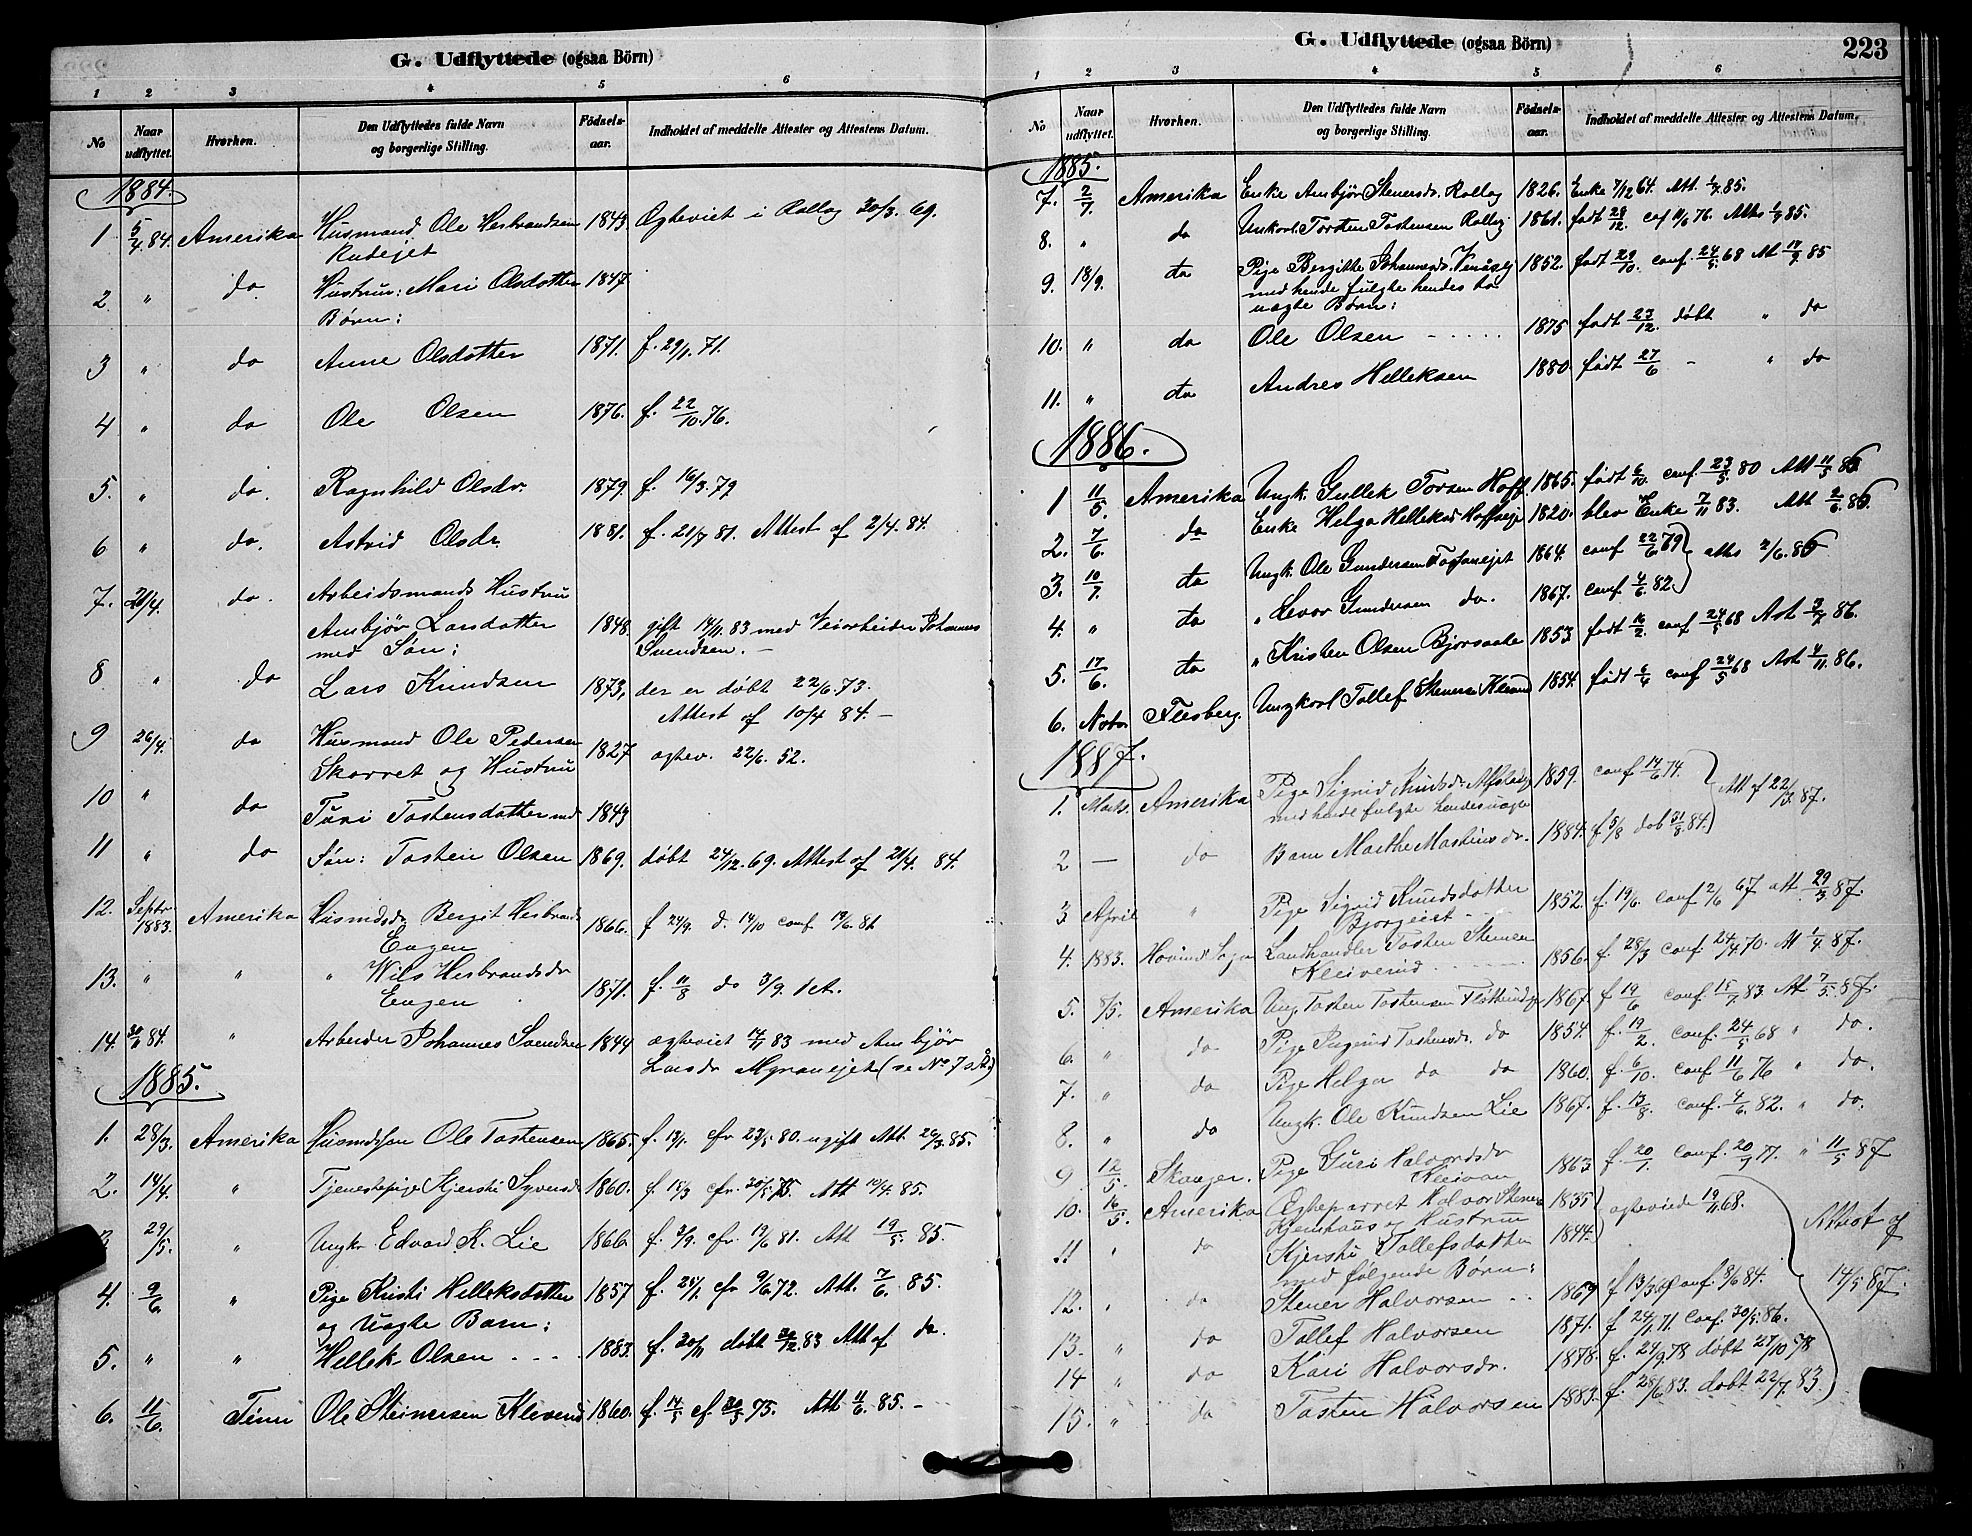 G. Udflyttede (ogsaa Börn)
1 2 3 4 5 6
No Naar udflyttet. Hvorhen. Den Udflyttedes fulde Navn og borgerlige Stilling. Födsels-aar. Indholdet af meddelte Attester og Attestens Datum.
1884.
1 5/4 84. Amerika Husmand Ole Herbrandsen 1843 Ægteviet i Rollag 30/3. 69.
Rudejet
2 " do Hustru: Mari Olsdotter 1847
Børn:
3 " do Anne Olsdotter 1871. f. 29/1. 71.
4 " do Ole Olsen 1876. f. 22/10. 76.
5. " do. Ragnhild Olsdr. 1879. f. 16/3. 79
6 " do. Astrid Olsdr. 1881. f. 21/7 81. Attest af 2/4. 84.
7. 21/4. do. Arbeidsmands Hustru
Ambjør Larsdotter 1848. gift 14/11. 83 med Veiarbeider Johannes
med Søn: Svendsen. —
8 " do Lars Knudsen 1873, der er døbt 22/6. 73.
Attest af 10/4 84. —
9 26/4. do Husmand Ole Pedersen 1827 ægtev. 22/6. 52.
Skarret og Hustru
10 " do Turi Tostensdotter med 1843
11 " do Søn: Tosten Olsen 1869. døbt 24/12. 69. Attest af 21/4. 84.
12. Septbr 1883. Amerika Husmdsdr Bergit Herbrands 1866. f 24/9. d. 14/10 conf 19/6. 81
Engen
13. " " " Herbrandsdr 1871. f. 11/8 do 3/9. 1 et.
Engen
14. 84. " Arbeider Johannes Svendsen 1844 ægteviet 14/11 83 med Ambjør
Larsdr Myranejet (se No 7 )
1885.
1. 28/3. Amerika Husmdssøn Ole Tostensen 1865. f. 13/1. cfr 23/5. 80. ugift Att. 26/3. 85.
2. 14/4. " Tjenestepige Kjersti Syversdr 1860. f. 15/3 cfr. 30/5. 75. Att 10/4. 85.
29/5. " Ungkr. Edvard K. Lie 1866. f. 3/9. cfr. 19/6 81. Att 19/5. 85.
4. 9/6. " Pige Kristi Helleksdotter 1857 f. 25/1. cfr 9/6. 72. Att. 7/6. 85.
og uægte Barn:
5. " " Hellek Olsen . . . . 1883. f. 20/11 døbt 26/12. 83 Att af do.
6. 11/6. Tinn Ole Steinersen Kleverud 1860. f. 14/5 cf. 30/5 75. Att 11/6. 85. —
G. Udflyttede (ogsaa Börn)
223
1 2 3 4 5 6
No Naar udflyttet. Hvorhen. Den Udflyttedes fulde Navn og borgerlige Stilling. Födsels-aar. Indholdet af meddelte Attester og Attestens Datum.
1885.
7. 2/7. Amerika Enke Ambjør Stenersdr. Rollag 1826. Enke 7/12 64. Att. 1/7. 85.
8. " do Unkarl. Torsten Tostensen Rollag 1861. født 28/12. conf 11/6 76. Atts 1/7 85.
9. 18/9. do Pige Bergitte Johannesdr. 1852. født 29/10. conf. 24/5. 68 At 17/9. 85
med hende fulgte hendes to
uægte Børn:
10. " do Ole Olsen - . . . . 1875 født 23/12. døbt " do
11. " do Andres Helleksen 1880. født 27/6 - " do
1886.
1 11/5. Amerika Ungk. Gullek Torsen Hoff. 1865. født conf. 23/5. 80 Att 11/5 86
2. 7/6. do Enke Helga Helleksd Hoffseje 1820. blev Enke 7/11 83. Att 2/6. 86.
3. 10/7. do Ungk. Ole Gundersen 1864. conf 22/6 79 atts 2/6. 86
4. " do " Levor Gundersen do. 1867. conf. 4/6. 82.
5. 17/6. do " Kristen Olsen Bjørsaale 1853 født 16/2. conf 24/5 68 Att 86.
6. Novbr Flesberg. Ungkarl Tollef Stenersen 1854. født 6/4 conf. 24/5 68 Att 4/11. 86.
1887.
1. Marts. Amerika Pige Sigrid Knudsdr. 1859. conf 14/6. 74. Att af 22/3. 87.
med hende fulgte hendes uægte
2 — do Barn Marthe Mortinsdr. 1884. f 5/8 døb 31/8. 84.
3 April " Pige Sigrid Knudsdotter 1852. f. 19/6. conf 2/6 67 att 29/3. 87.
Bjorgeiet - . . .
4. 1883. Hovind Sogn Landhandler Tosten Stenersen 1856. f. 28/3 conf. 24/4. 70. At 1/4. 87.
Kleiverud . . . . .
5. 8/5. Amerika Ung. Tosten Tostensen 1867. f 19/6 conf. 15/7. 83. At 7/5. 87.
6. " do Pige Ingerid Tostensdr. do 1854. f. 19/2. conf. 24/5 68 " do.
7. " do Pige Helga do do 1860. f. 6/10. conf. 11/6 76 " do.
8. " do Ungk. Ole Knudsen Lie 1867. f. 13/8. conf. 4/6. 82. " do.
9 12/5. Stanger. Pige Guri Halvorsdr 1863 f. 20/1. conf. 20/7 77. " 11/5 87
Kleivan
10. 16/5. Amerika Ægteparret Halvor Steners 1835 ægteviede 19/11 68. Attest af
Kjemhaus og Hustru
11 " do Kjersti Tollefsdotter 1844.
med følgende Børn:
12. " do Stener Halvorsen . . 1869 f 13/3 69 conf. 8/6 84. 14/5 87.
13. " do Tollef Halvorsen 1871. f 24/1. 71. conf. 30/5. 86.
14 " do Kari Halvorsdr. 1878. f. 27/9. 78 døbt 27/10 78
15. " do Tosten Halvorsen 1883. f. 28/6. 83. døbt 22/7. 83